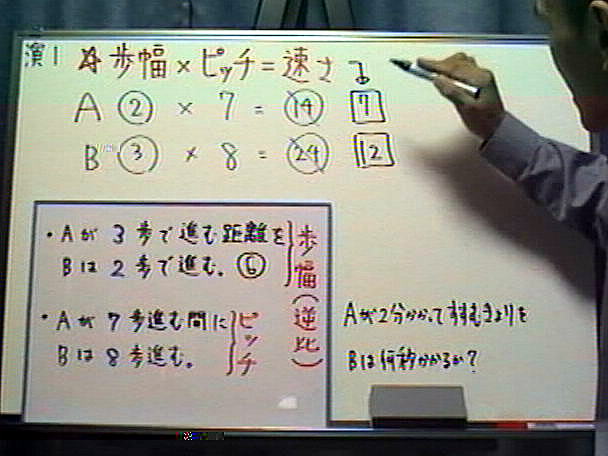 演1 歩幅×ピッチ=速さ
A ② × 7 = ⑭ 7
B ③ × 8 = ㉔ 12
・Aが3歩で進む距離を
Bは2歩で進む。⑥
歩幅(逆比)
・Aが7歩進む間に
Bは8歩進む。
ピッチ
Aが2分かかってすすむきょりを
Bは何秒かかるか?